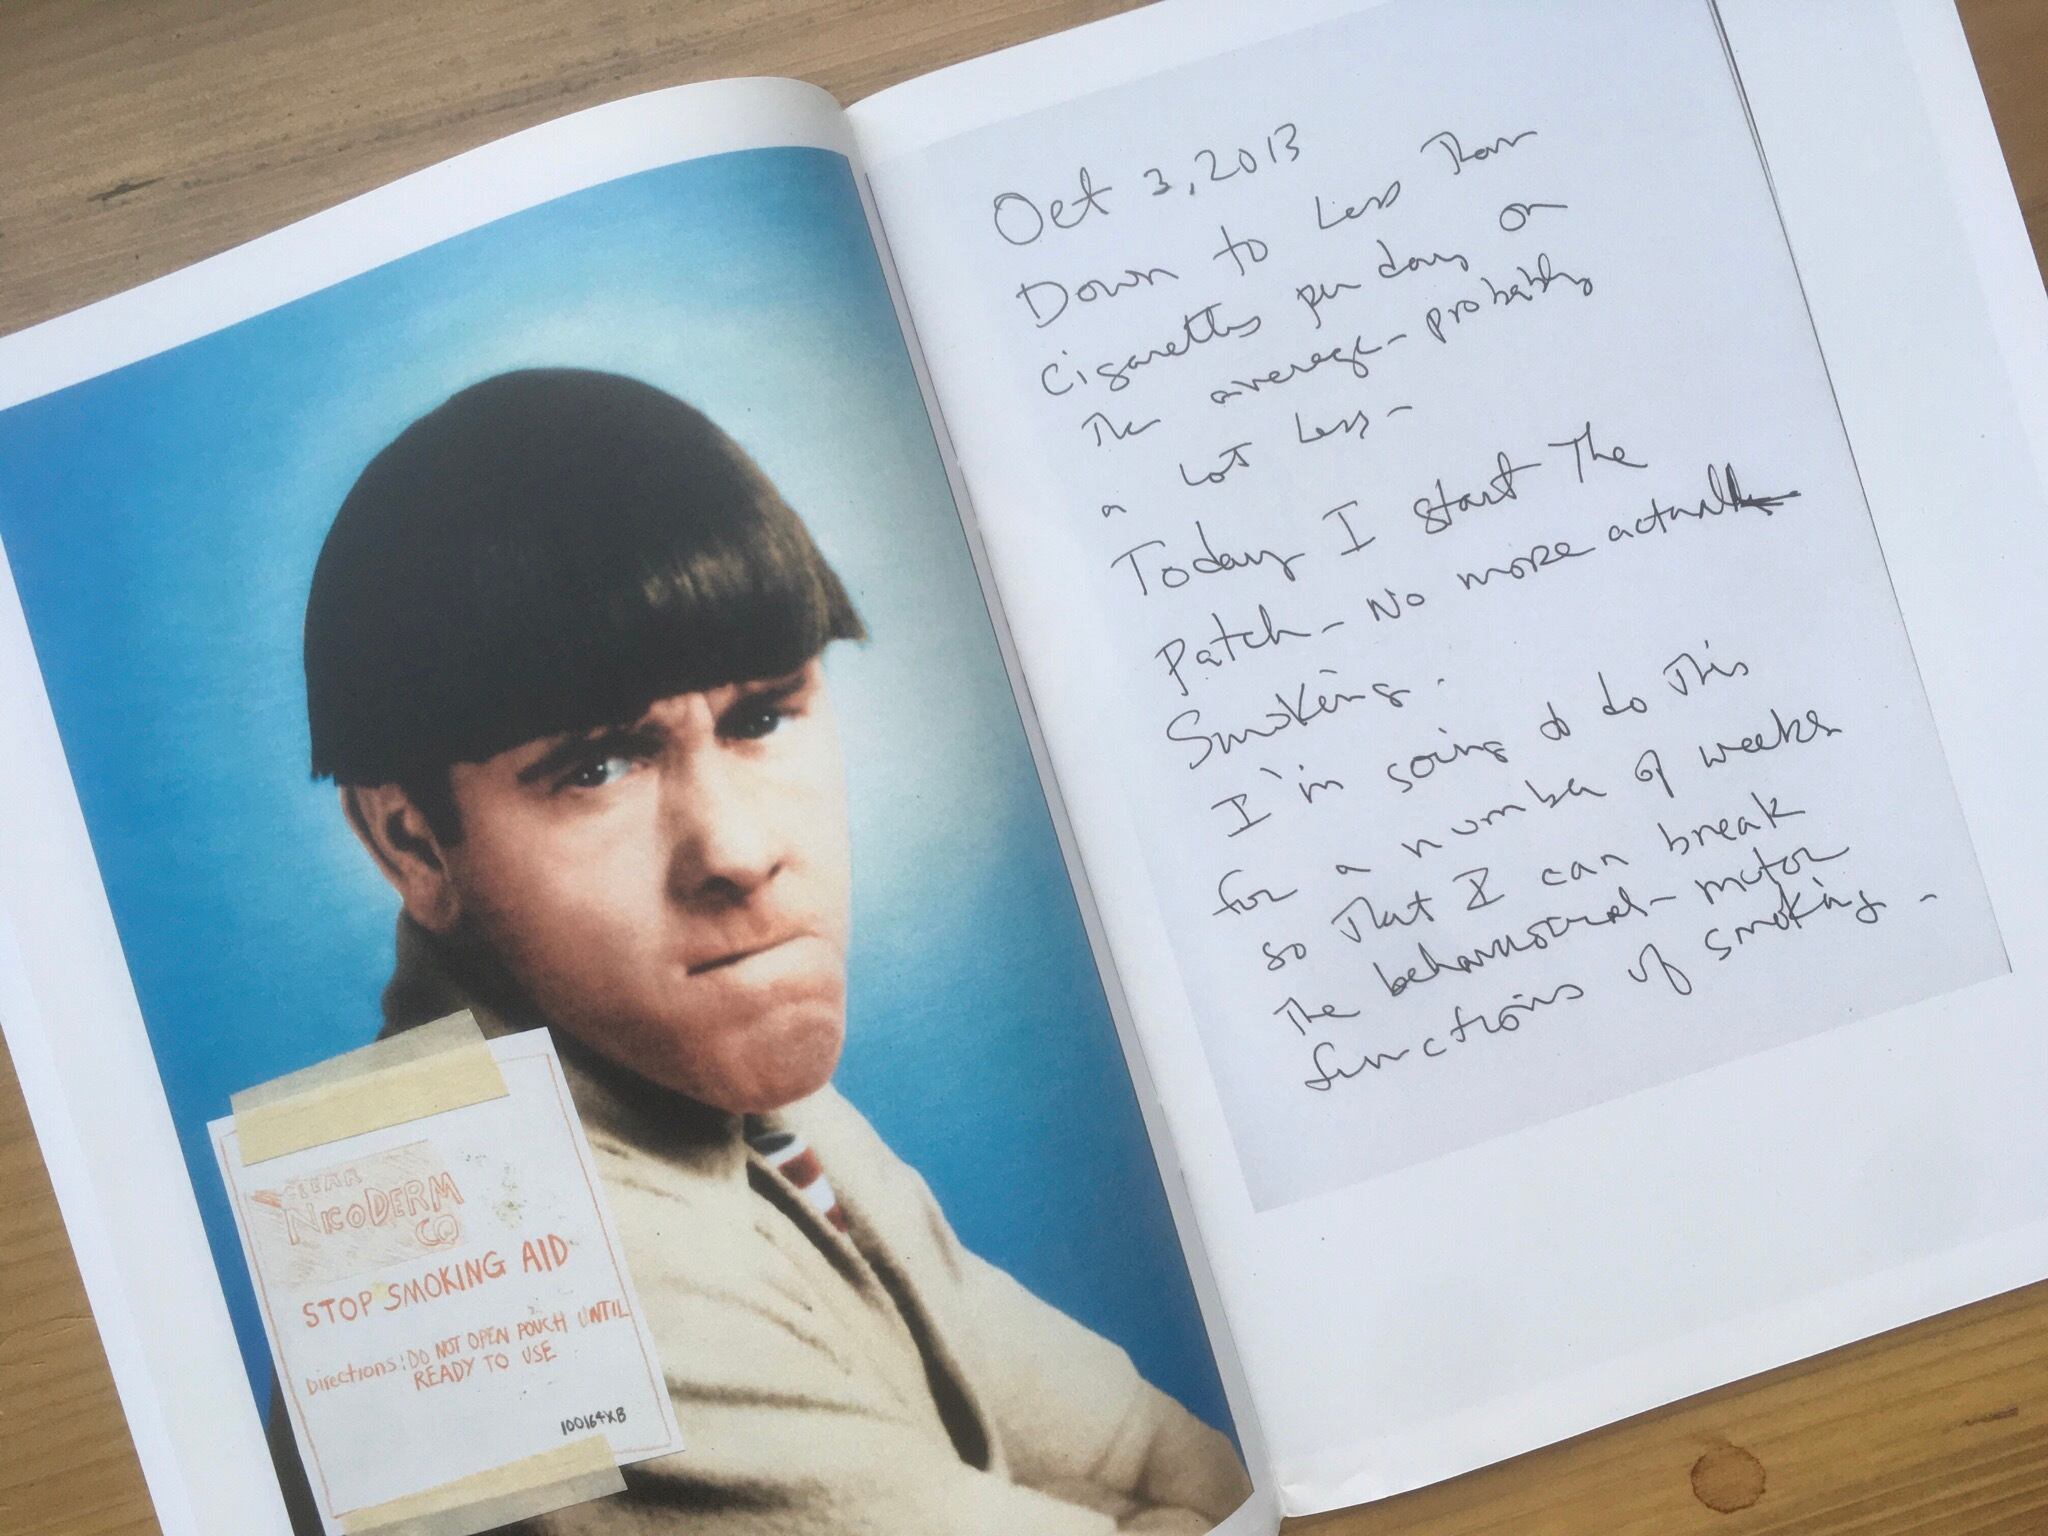 CLEAR
NICODERM
CQ
STOP SMOKING AID
Directions: DO NOT OPEN POUCH UNTIL
READY TO USE
100164XB
Oct 3, 2013
Down to Less Than
Cigarettes per day on
The average - probably
a Lot Less -
Today I start The
Patch - No more actual
Smoking.
I'm going to do This
for a number of weeks
so That I can break
The behavioural - motor
functions of smoking -